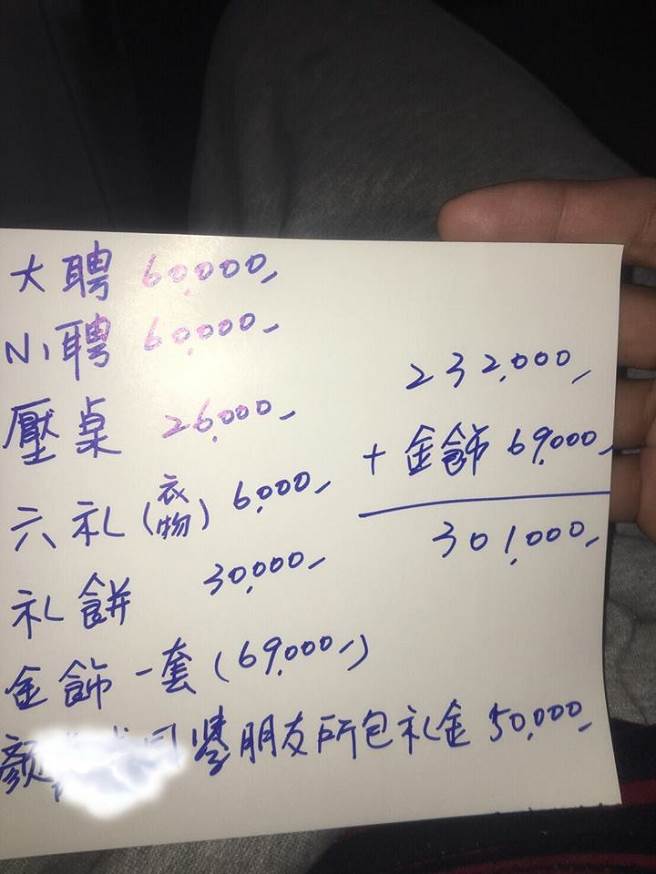 大聘 60,000,
小聘 60,000,
壓桌 26,000,
六礼(衣物) 6,000,
礼餅 30,000,
金飾一套(69,000,)
顏 朋友所包礼金 50,000,
232,000,
+ 金飾 69,000,
301,000,